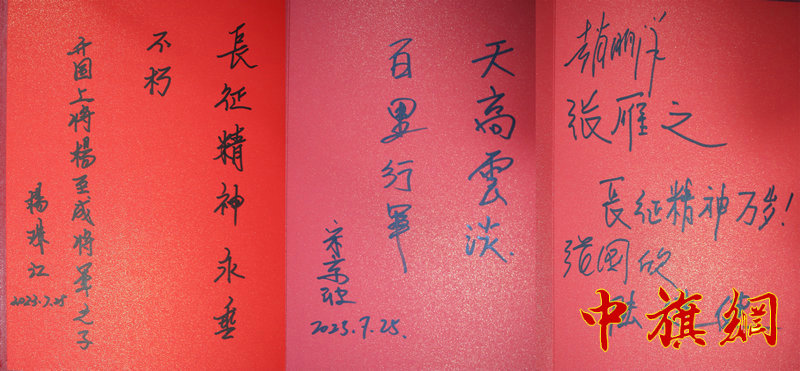 長征精神永垂
不朽
开国上将楊至成将軍之子
楊珠江
2023.7.25
天高雲淡.
百里行軍
宋京
2023.7.25.
赵鹏祥
張雁之
長征精神万岁!
張国欣
陆
中旗網